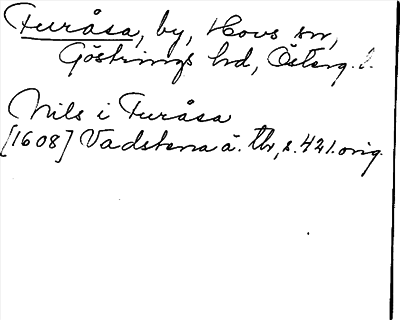 Furåsa, by, Hovs sn,
Göstrings hd, Österg. l.
Nils i Furåsa
[1608] Vadstena ä. Tb, s. 421. orig.